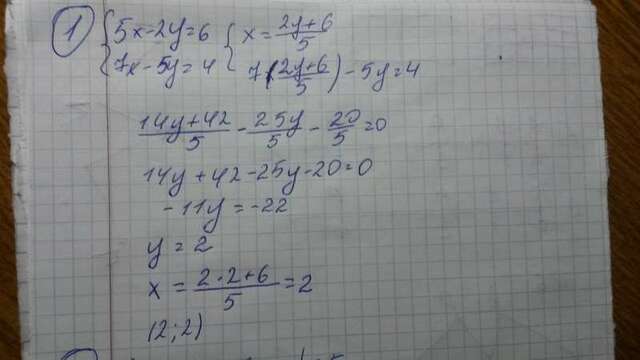 1) { 5x-2y=6 { x = (2y+6)/5
{ 7x-5y=4 { 7·((2y+6)/5) - 5y=4
(14y+42)/5 - 25y/5 - 20/5 =0
14y+42-25y-20=0
-11y=-22
y=2
x = (2·2+6)/5 =2
(2;2)